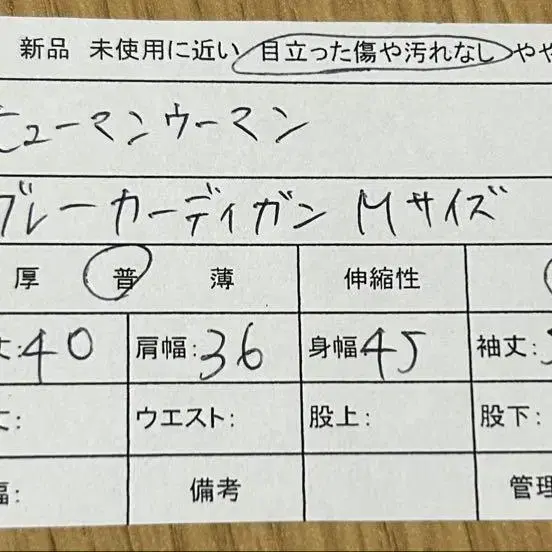 新品 未使用に近い 目立った傷や汚れなし やや
ヒューマンウーマン
ブレーカーディガン Mサイズ
厚 普 薄 伸縮性
丈:40 肩幅:36 身幅45 袖丈:
丈: ウエスト: 股上: 股下:
幅: 備考 管理